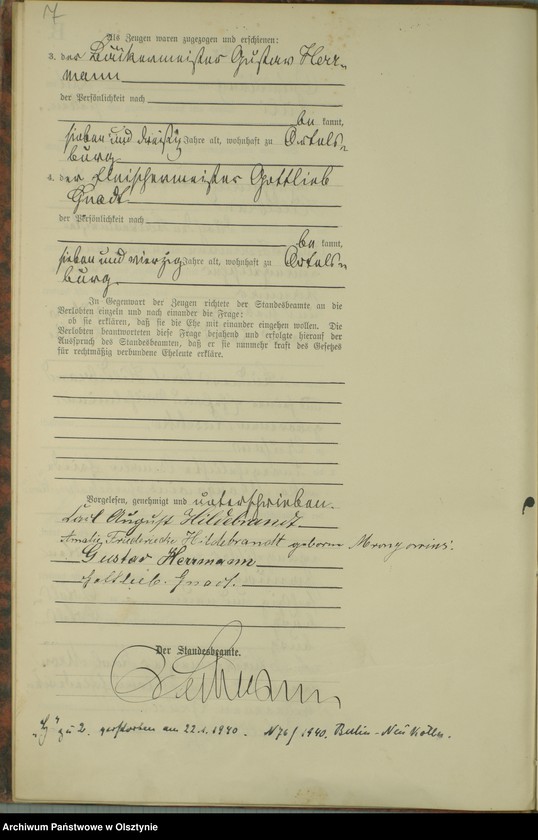 7
Als Zeugen waren zugezogen und erschienen:
3. der Bäckermeister Gustav Herr-
mann
der Persönlichkeit nach
be kannt,
sieben und dreißig Jahre alt, wohnhaft zu Ortels-
burg
4. der Fleischermeister Gottlieb
Gnadt
der Persönlichkeit nach
be kannt,
sieben und vierzig Jahre alt, wohnhaft zu Ortels-
burg.
In Gegenwart der Zeugen richtete der Standesbeamte an die
Verlobten einzeln und nach einander die Frage:
ob sie erklären, daß sie die Ehe mit einander eingehen wollen. Die
Verlobten beantworteten diese Frage bejahend und erfolgte hierauf der
Ausspruch des Standesbeamten, daß er sie nunmehr kraft des Gesetzes
für rechtmäßig verbundene Eheleute erkläre.
Vorgelesen, genehmigt und unterschrieben.
Carl August Hildebrandt
Amalie Friedericke Hildebrandt geborne Mrongovius.
Gustav Herrmann
Gottlieb Gnadt.
Der Standesbeamte.
zu 2. gestorben am 22.1.1940. N 76/1940. Berlin-Neukölln.
Archiwum Państwowe w Olsztynie